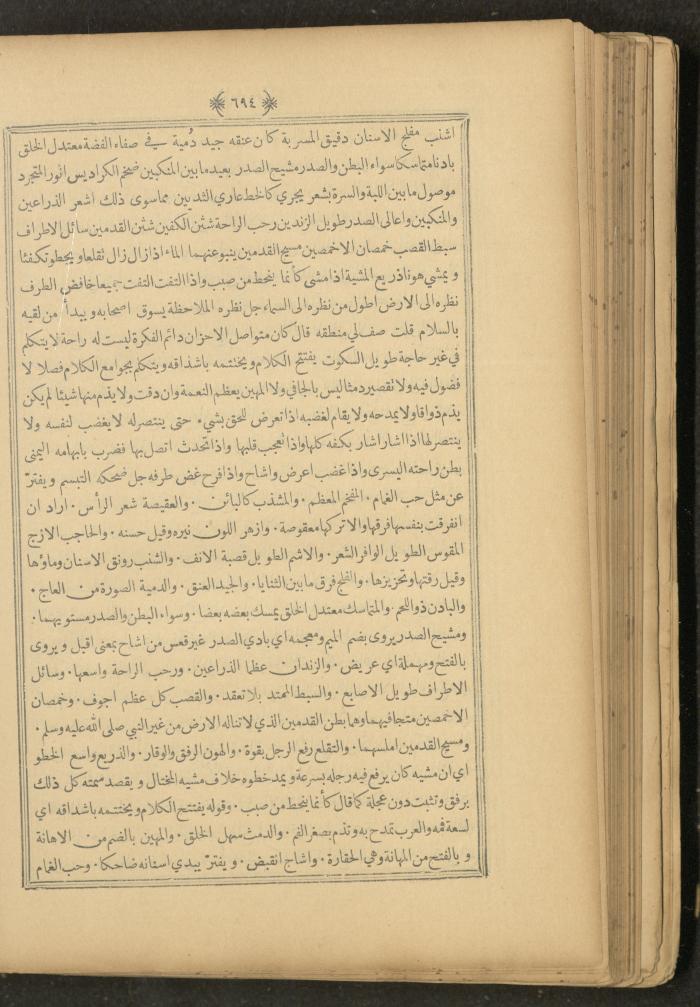 ٦٩٤
اشنب مفلج الاسنان دقيق المسربة كان عنقه جيد دُمية في صفاء الفضة معتدل الخلق
بادنا متماسكا سواء البطن والصدر مشيح الصدر بعيد ما بين المنكبين ضخم الكراديس انور المتجرد
موصول ما بين اللبة والسرة بشعر يجري كالخط عاري الثديين مما سوى ذلك اشعر الذراعين
والمنكبين واعالى الصدر طويل الزندين رحب الراحة شثن الكفين شثن القدمين سائل الاطراف
سبط القصب خمصان الاخمصين مسيح القدمين ينبو عنهما الماء اذا زال زال تقلعا ويخطو تكفئا
ويمشي هونا ذريع المشية اذا مشى كأنما ينحط من صبب واذا التفت التفت جميعا خافض الطرف
نظره الى الارض اطول من نظره الى السماء جل نظره الملاحظة يسوق اصحابه و يبدأ من لقيه
بالسلام قلت صف لي منطقه قال كان متواصل الاحزان دائم الفكرة ليست له راحة لا يتكلم
في غير حاجة طويل السكوت يفتتح الكلام ويختتمه باشداقه ويتكلم بجوامع الكلام فصلا لا
فضول فيه ولا تقصير دمثا ليس بالجافي ولا المهين يعظم النعمة وان دقت ولا يذم منها شيئا لم يكن
يذم ذواقا ولا يمدحه ولا يقام لغضبه اذا تعرض للحق بشيء حتى ينتصر له لا يغضب لنفسه ولا
ينتصر لها اذا اشار اشار بكفه كلها واذا تعجب قلبها واذا تحدث اتصل بها فضرب بابهامه اليمنى
بطن راحته اليسرى واذا غضب اعرض واشاح واذا فرح غض طرفه جل ضحكه التبسم و يفترّ
عن مثل حب الغمام ٠ المفخم المعظم ٠ والمشذب كالبائن ٠ والعقيصة شعر الرأس ٠ اراد ان
انفرقت بنفسها فرقها والا تركها معقوصة ٠ وازهر اللون نيره وقيل حسنه ٠ والحاجب الازج
المقوس الطويل الوافر الشعر ٠ والاشم الطويل قصبة الانف ٠ والشنب رونق الاسنان وماؤها
وقيل رقتها وتحزيزها ٠ والفلج فرق ما بين الثنايا ٠ والجيد العنق ٠ والدمية الصورة من العاج ٠
والبادن ذو اللحم ٠ والمتماسك معتدل الخلق يمسك بعضه بعضا ٠ وسواء البطن والصدر مستويهما ٠
ومشيح الصدر يروى بضم الميم ومعجمه اي بادي الصدر غير قعس من اشاح بمعنى اقبل و يروى
بالفتح ومهملة اي عريض ٠ والزندان عظما الذراعين ٠ ورحب الراحة واسعها ٠ وسائل
الاطراف طويل الاصابع ٠ والسبط الممتد بلا تعقد ٠ والقصب كل عظم اجوف ٠ وخمصان
الاخمصين متجافيهما وهما بطن القدمين الذي لا تناله الارض من غير النبي صلى الله عليه وسلم ٠
ومسيح القدمين املسهما ٠ والتقلع رفع الرجل بقوة ٠ والهون الرفق والوقار ٠ والذريع واسع الخطو
اي ان مشيه كان يرفع فيه رجله بسرعة ويمد خطوه خلاف مشيه المختال و يقصد سمته كل ذلك
برفق وتثبت دون عجلة كما قال كأنما ينحط من صبب ٠ وقوله يفتتح الكلام ويختتمه باشداقه اي
لسعة فمه والعرب تمدح به وتذم بصغر الفم ٠ والدمث سهل الخلق ٠ والمهين بالضم من الاهانة
و بالفتح من المهانة وهي الحقارة ٠ واشاح انقبض ٠ و يفترّ يبدي اسنانه ضاحكا ٠ وحب الغمام